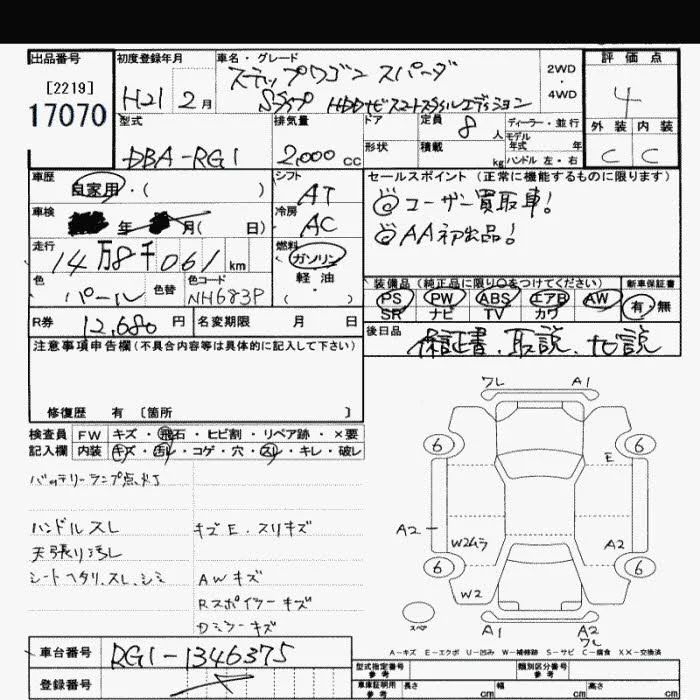 出品番号 初度登録年月 車名・グレード 評価点
[2219]
17070
H21 2月
ステップワゴン スパーダ
Sタイプ HDDナビスマートスタイルエディション
2WD
・
4WD
4
外装 内装
C C
型式 排気量 ドア 定員 8人 ディーラー・並行
DBA-RG1 2,000cc
形状 積載 kg
モデル年式 年
ハンドル 左・右
車歴 自家用・( )
シフト AT
車検 年 月( 日)
冷房 AC
走行 14万8千061km
燃料 ガソリン
軽油
・( )
色 パール 色替 色コード NH683P
R券 12,680円 名変期限 月 日
セールスポイント(正常に機能するものに限ります)
◎ユーザー買取車!
◎AA初出品!
装備品(純正品に限り○をつけてください) 新車保証書
PS PW ABS エアB AW 有・無
SR ナビ TV カワ
後日品 保証書、取説、ナビ説
注意事項申告欄(不具合内容等は具体的に記入して下さい)
修復歴 有 [箇所 ]
検査員記入欄
FW キズ・飛石・ヒビ割・リペア跡・×要
内装 キズ・汚れ・コゲ・穴・スレ・キレ・破レ
バッテリーランプ点灯
ハンドルスレ キズE.スリキズ
天張り汚レ
シートヘタリ、スレ、シミ AWキズ
Rスポイラーキズ
Dミラーキズ
ワレ A1
6 6
E
A2 W2ムラ A2
6 6
W2
スペア A1 A2
ワレ
A-キズ E-エクボ U-凹み W-補修跡 S-サビ C-腐食 XX-交換済
車台番号 RG1-1346375
登録番号
型式指定番号 参考 類別区分番号 参考
車庫証明用 参考 長さ cm 幅 cm 高さ cm